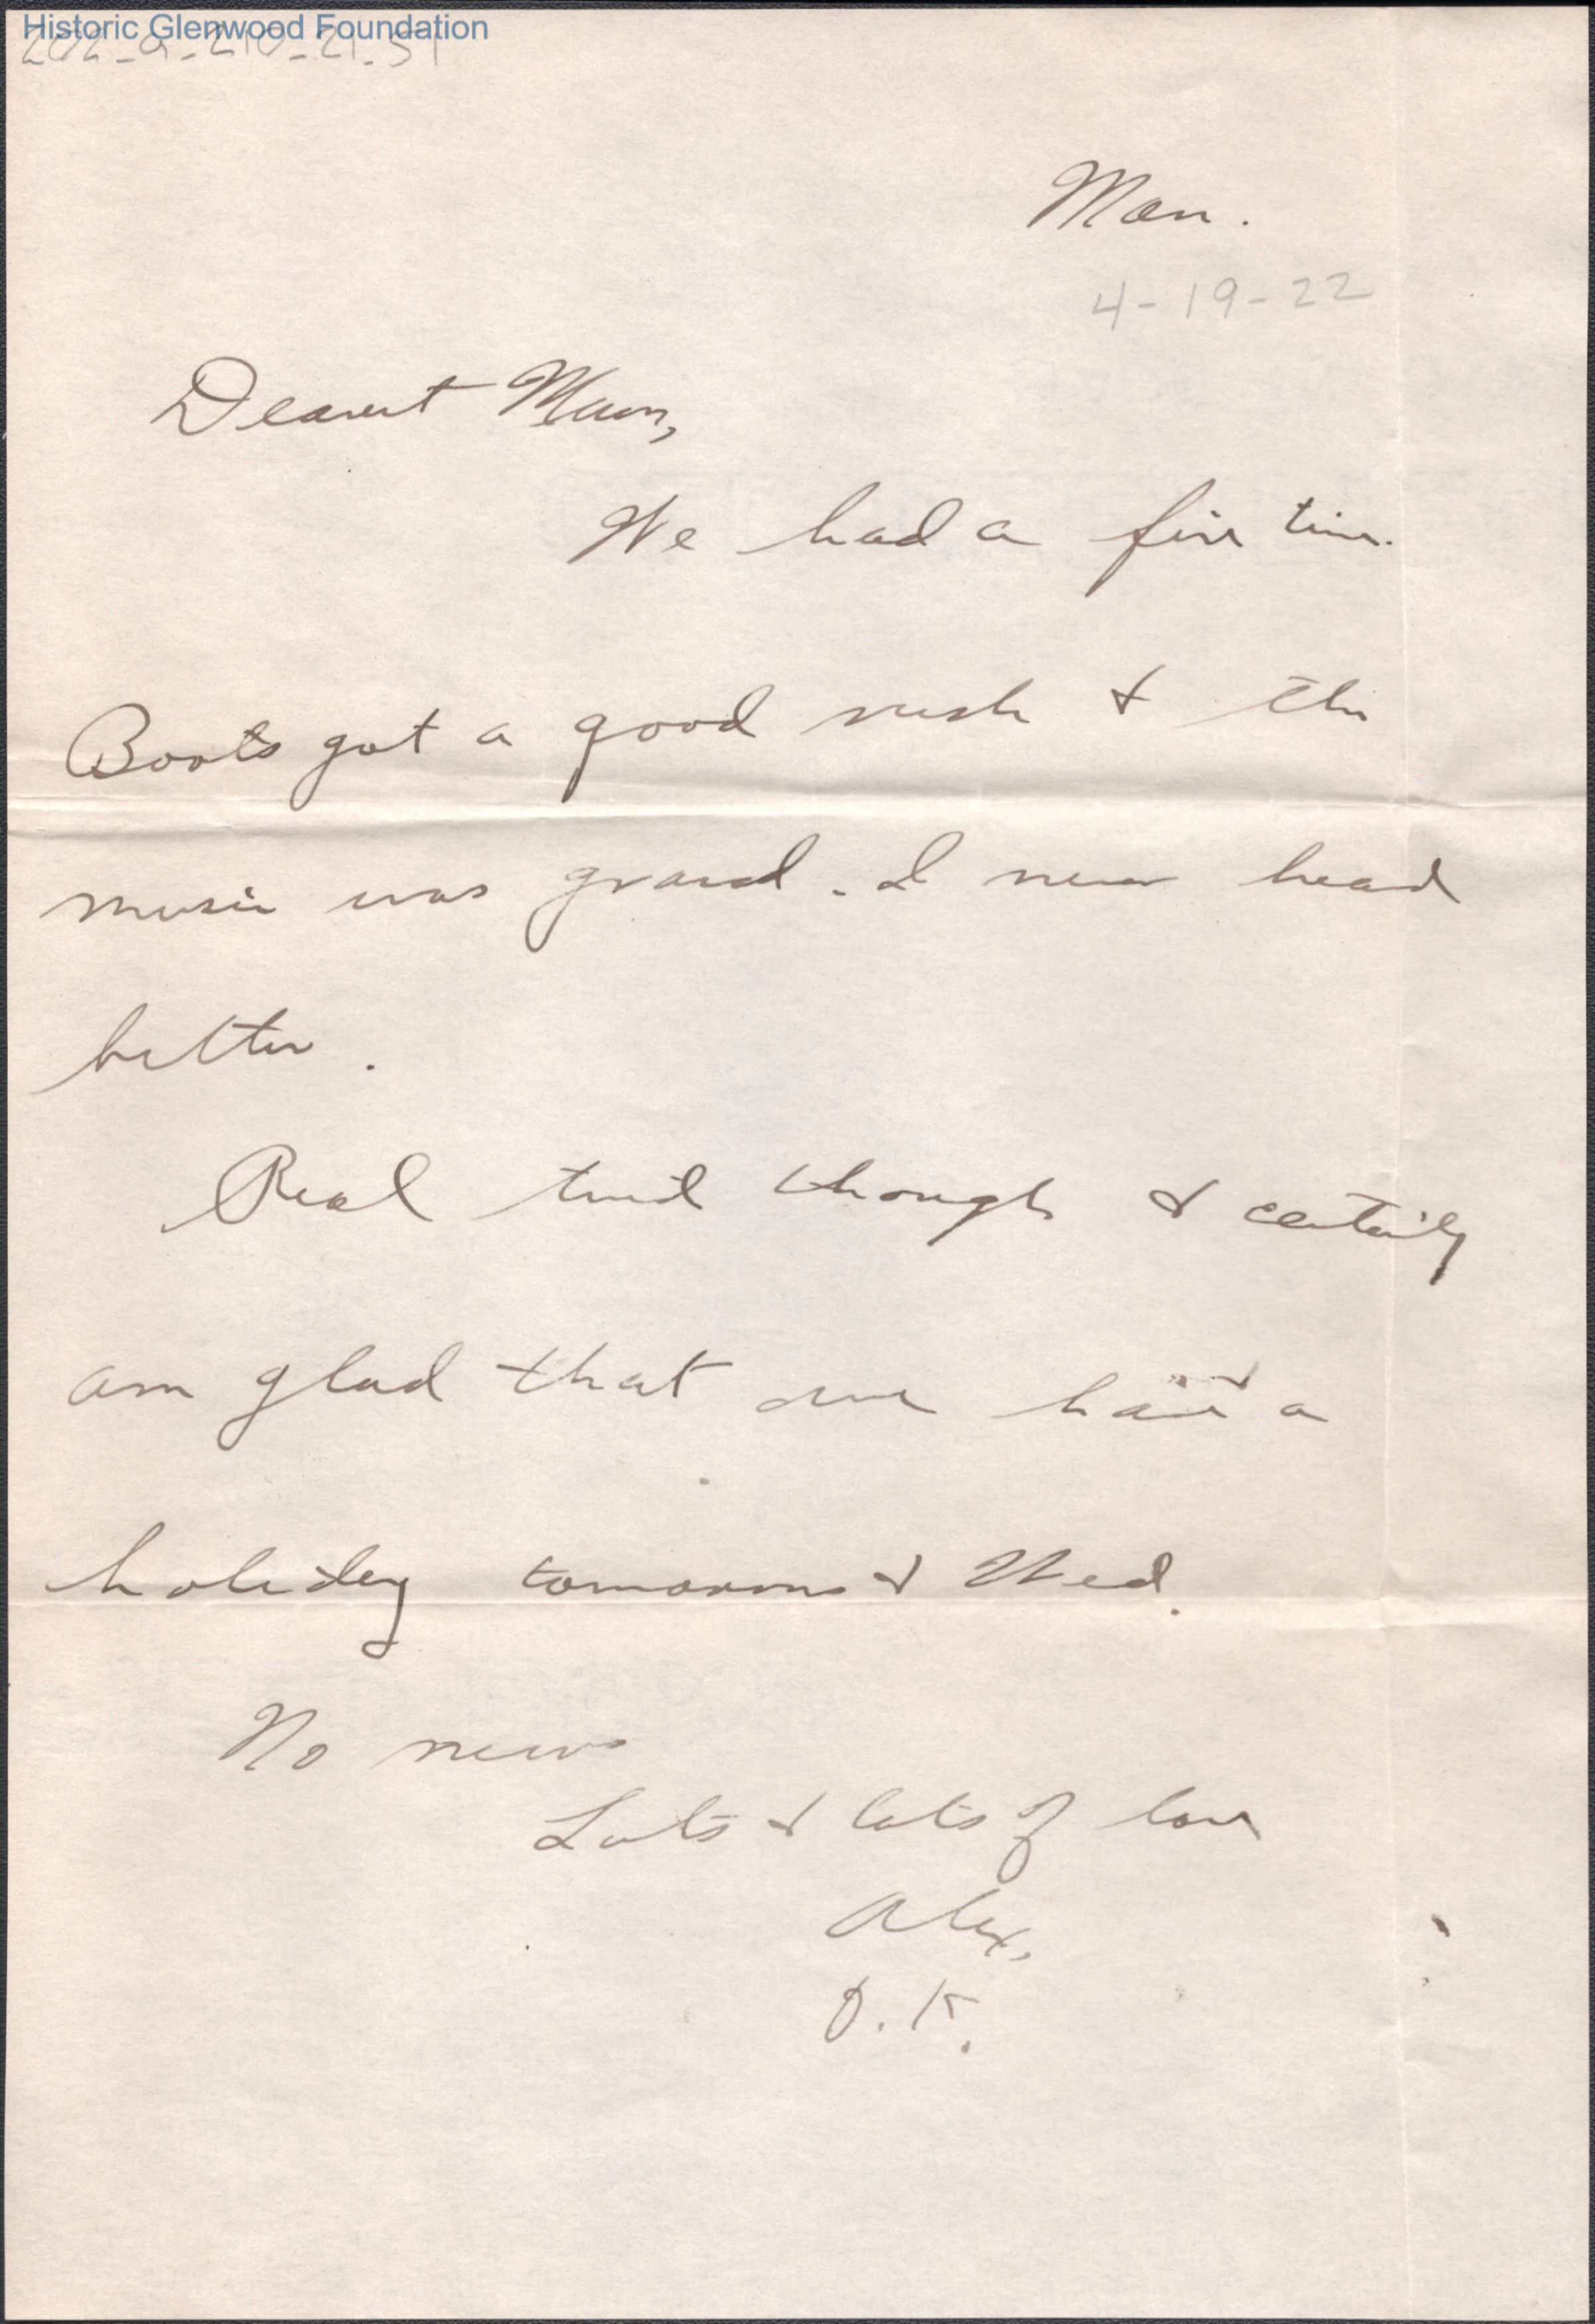 Historic Glenwood Foundation
Mon.
4-19-22
Dearest Mum,
We had a fine time.
Boots got a good rush & the
music was grand. I never heard
better.
Real tired though & certainly
am glad that we have a
holiday tomorrow & Wed.
No news
Lots & lots of love
Alex.
O.K.